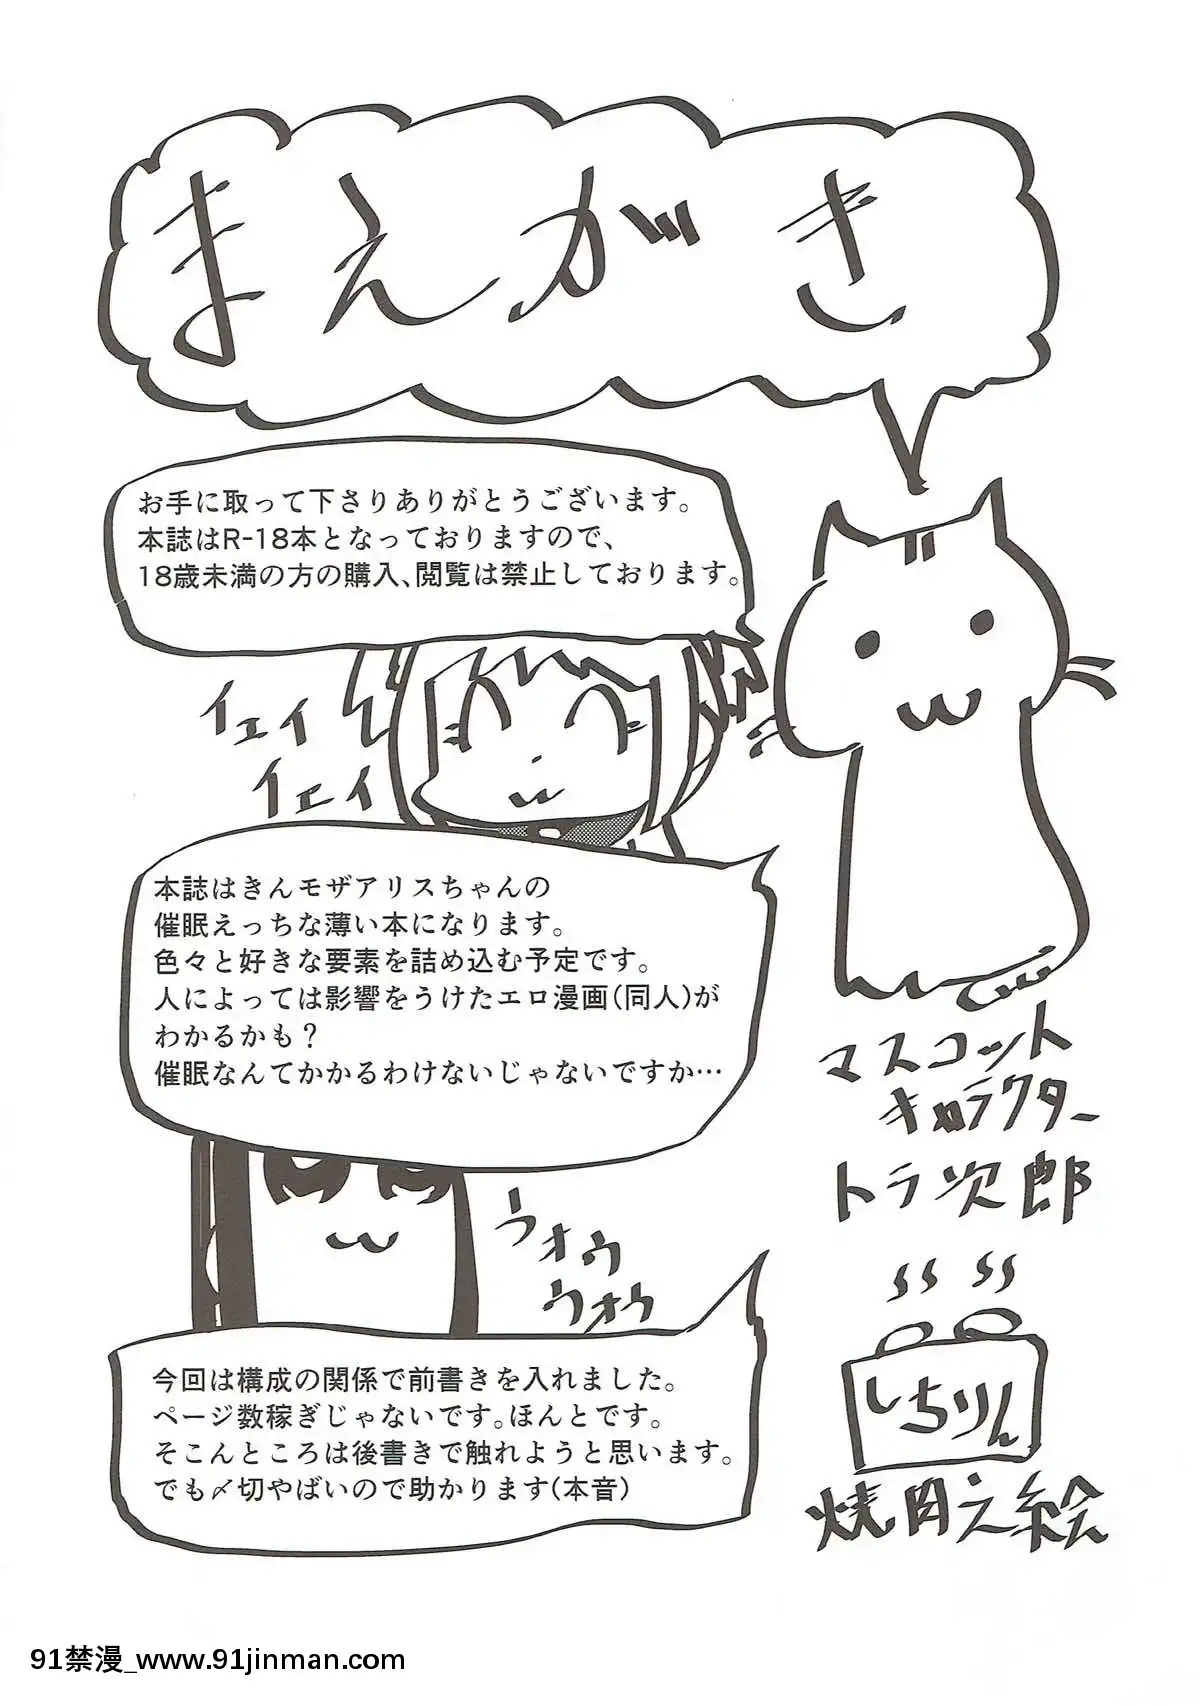 まえがき
お手に取って下さりありがとうございます。
本誌はR-18本となっておりますので、
18歳未満の方の購入、閲覧は禁止しております。
イェイ
イェイ
本誌はきんモザアリスちゃんの
催眠えっちな薄い本になります。
色々と好きな要素を詰め込む予定です。
人によっては影響をうけたエロ漫画(同人)が
わかるかも？
催眠なんてかかるわけないじゃないですか…
マスコット
キャラクター
トラ次郎
ウオウ
ウオウ
今回は構成の関係で前書きを入れました。
ページ数稼ぎじゃないです。ほんとです。
そこんところは後書きで触れようと思います。
でも〆切やばいので助かります(本音)
しちりん
焼肉之絵
91禁漫_www.91jinman.com